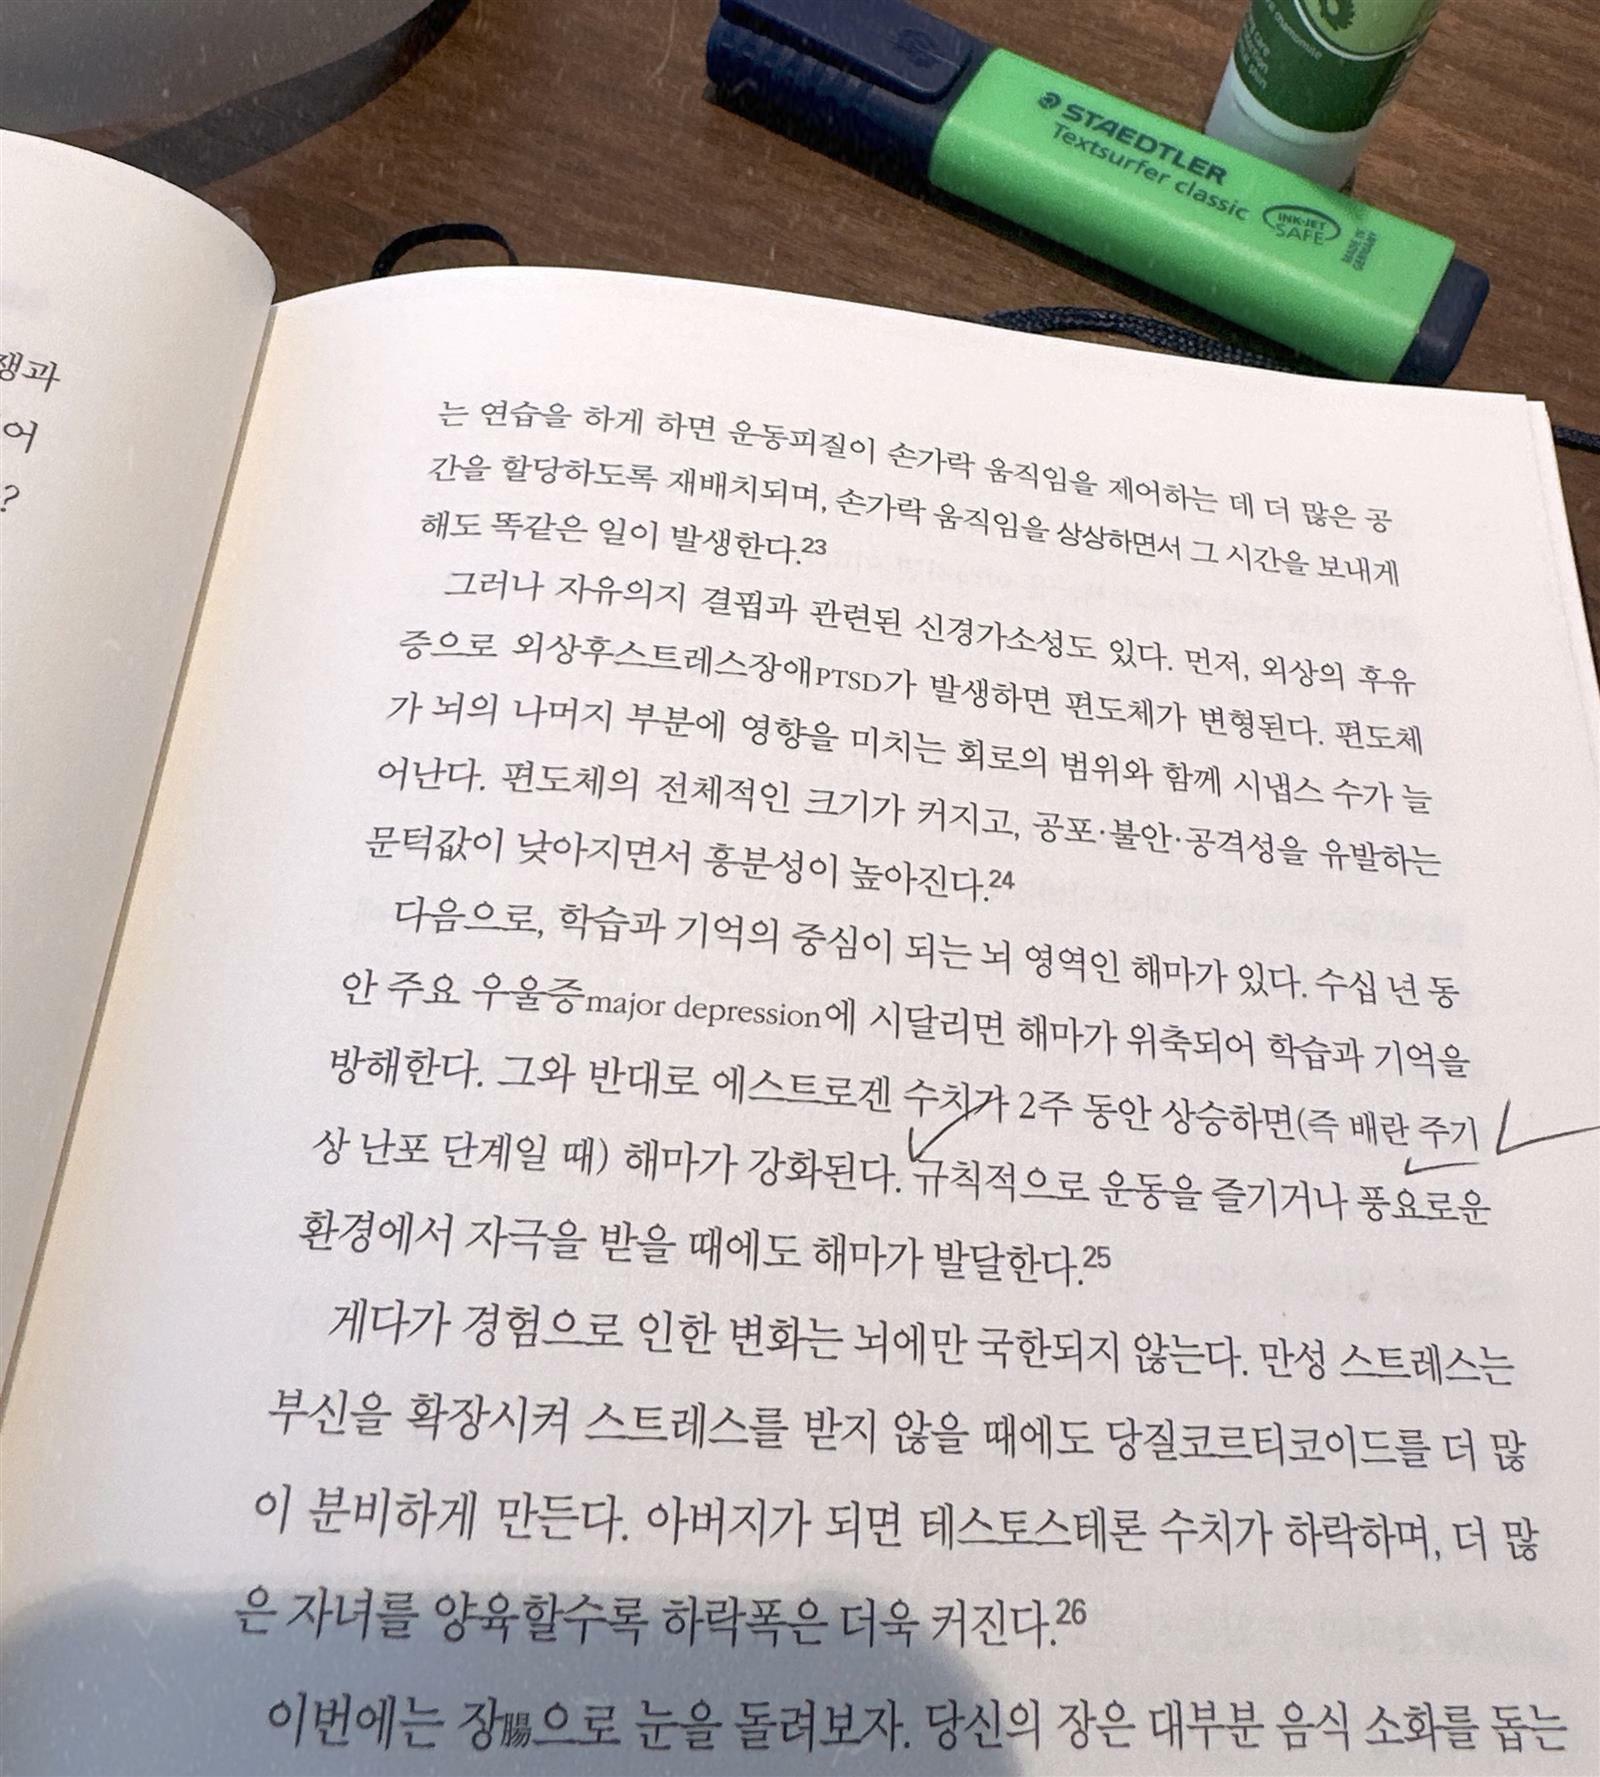 STAEDTLER
Textsurfer classic
INK-JET
SAFE
MADE IN
GERMANY
chamomile
쟁과
어
?
는 연습을 하게 하면 운동피질이 손가락 움직임을 제어하는 데 더 많은 공
간을 할당하도록 재배치되며, 손가락 움직임을 상상하면서 그 시간을 보내게
해도 똑같은 일이 발생한다.23
그러나 자유의지 결핍과 관련된 신경가소성도 있다. 먼저, 외상의 후유
증으로 외상후스트레스장애PTSD가 발생하면 편도체가 변형된다. 편도체
가 뇌의 나머지 부분에 영향을 미치는 회로의 범위와 함께 시냅스 수가 늘
어난다. 편도체의 전체적인 크기가 커지고, 공포·불안·공격성을 유발하는
문턱값이 낮아지면서 흥분성이 높아진다.24
다음으로, 학습과 기억의 중심이 되는 뇌 영역인 해마가 있다. 수십 년 동
안 주요 우울증major depression에 시달리면 해마가 위축되어 학습과 기억을
방해한다. 그와 반대로 에스트로겐 수치가 2주 동안 상승하면(즉 배란 주기
상 난포 단계일 때) 해마가 강화된다. 규칙적으로 운동을 즐기거나 풍요로운
환경에서 자극을 받을 때에도 해마가 발달한다.25
게다가 경험으로 인한 변화는 뇌에만 국한되지 않는다. 만성 스트레스는
부신을 확장시켜 스트레스를 받지 않을 때에도 당질코르티코이드를 더 많
이 분비하게 만든다. 아버지가 되면 테스토스테론 수치가 하락하며, 더 많
은 자녀를 양육할수록 하락폭은 더욱 커진다.26
이번에는 장腸으로 눈을 돌려보자. 당신의 장은 대부분 음식 소화를 돕는